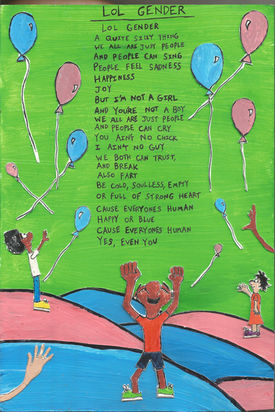 LOL GENDER
LOL GENDER
A QUITE SILLY THING
WE ALL ARE JUST PEOPLE
AND PEOPLE CAN SING
PEOPLE FEEL SADNESS
HAPPINESS
JOY
BUT I'M NOT A GIRL
AND YOU'RE NOT A BOY
WE ALL ARE JUST PEOPLE
AND PEOPLE CAN CRY
YOU AIN'T NO CHICK
I AIN'T NO GUY
WE BOTH CAN TRUST,
AND BREAK
ALSO FART
BE COLD, SOULLESS, EMPTY
OR FULL OF STRONG HEART
CAUSE EVERYONES HUMAN
HAPPY OR BLUE
CAUSE EVERYONES HUMAN
YES, EVEN YOU